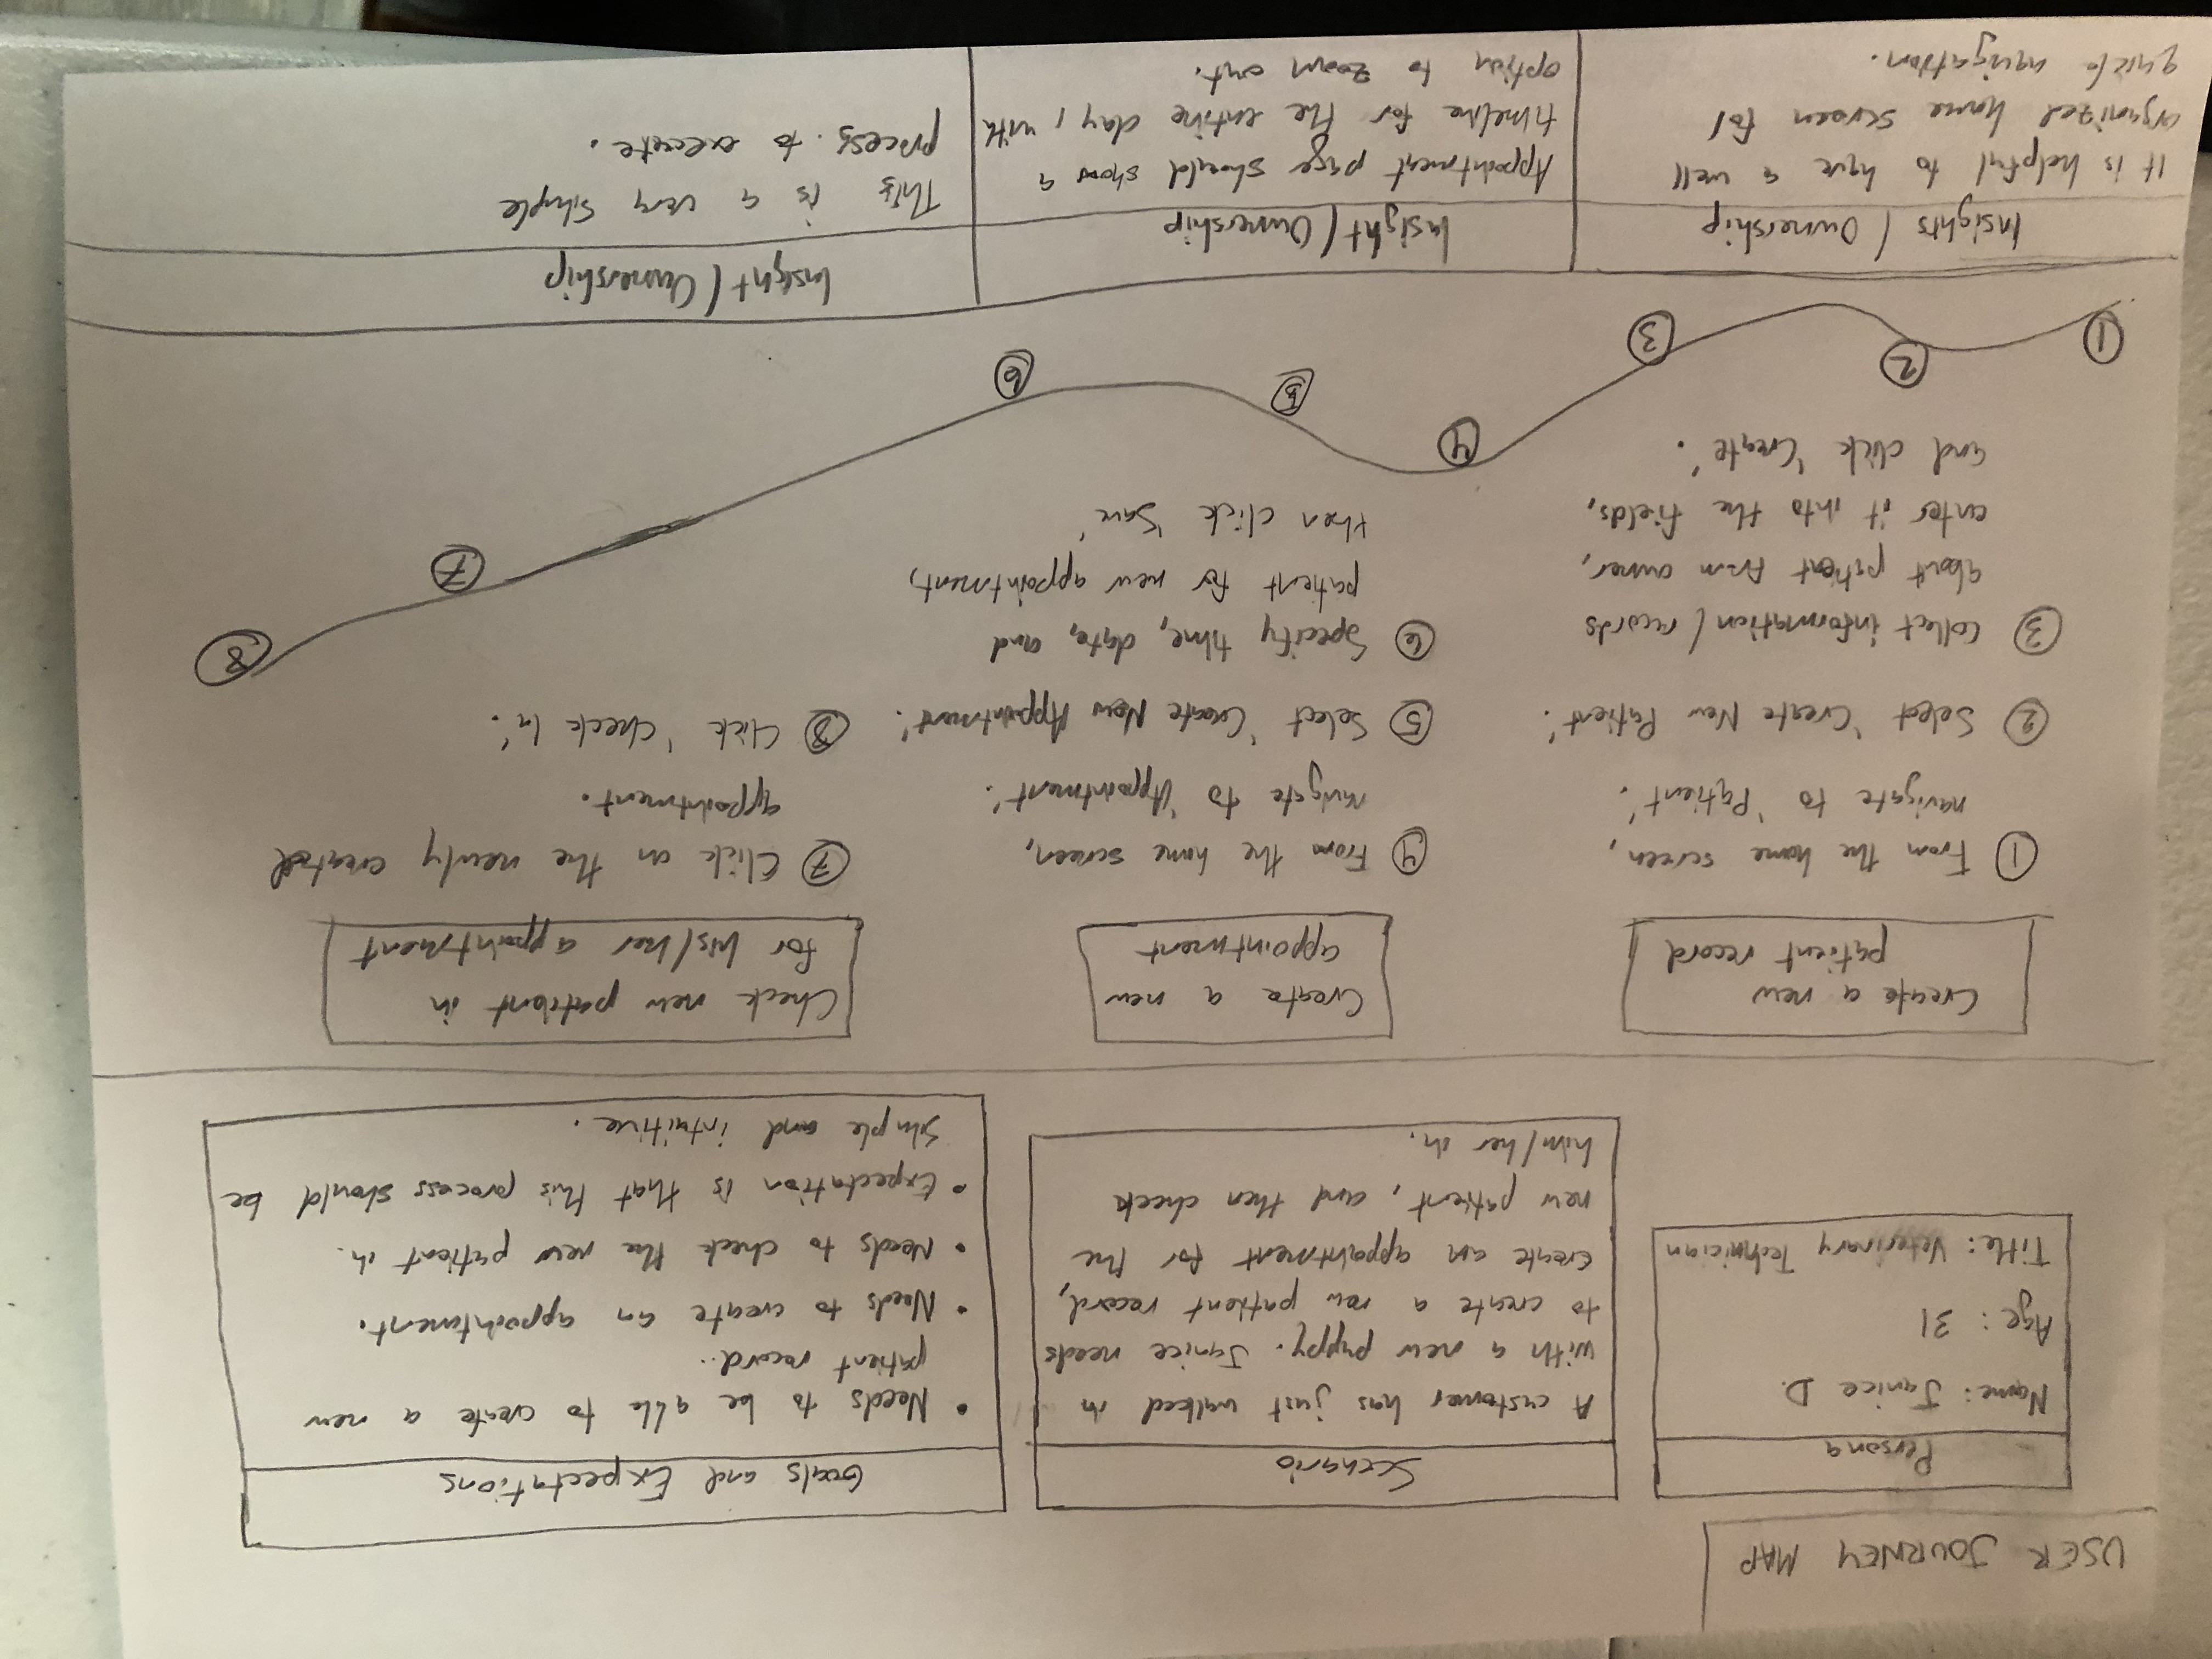 USER JOURNEY MAP
Persona
Name: Janice D.
Age: 31
Title: Veterinary Technician
Scenario
A customer has just walked in
with a new puppy. Janice needs
to create a new patient record,
create an appointment for the
new patient, and then check
him/her in.
Goals and Expectations
• Needs to be able to create a new
patient record..
• Needs to create an appointment.
• Needs to check the new patient in.
• Expectation is that this process should be
simple and intuitive.
Create a new
patient record
① From the home screen,
navigate to 'Patient'.
② Select 'Create New Patient'.
③ Collect information/records
about patient from owner,
enter it into the fields,
and click 'Create'.
Create a new
appointment
④ From the home screen,
navigate to 'Appointment'.
⑤ Select 'Create New Appointment'.
⑥ Specify time, date, and
patient for new appointment,
then click 'Save'
Check new patient in
for his/her appointment
⑦ Click on the newly created
appointment.
⑧ Click 'Check In'.
① ② ③ ④ ⑤ ⑥ ⑦ ⑧
Insights / Ownership
It is helpful to have a well
organized home screen for
quick navigation.
Insight / Ownership
Appointment page should show a
timeline for the entire day, with
option to zoom out.
Insight / Ownership
This is a very simple
process. to execute.